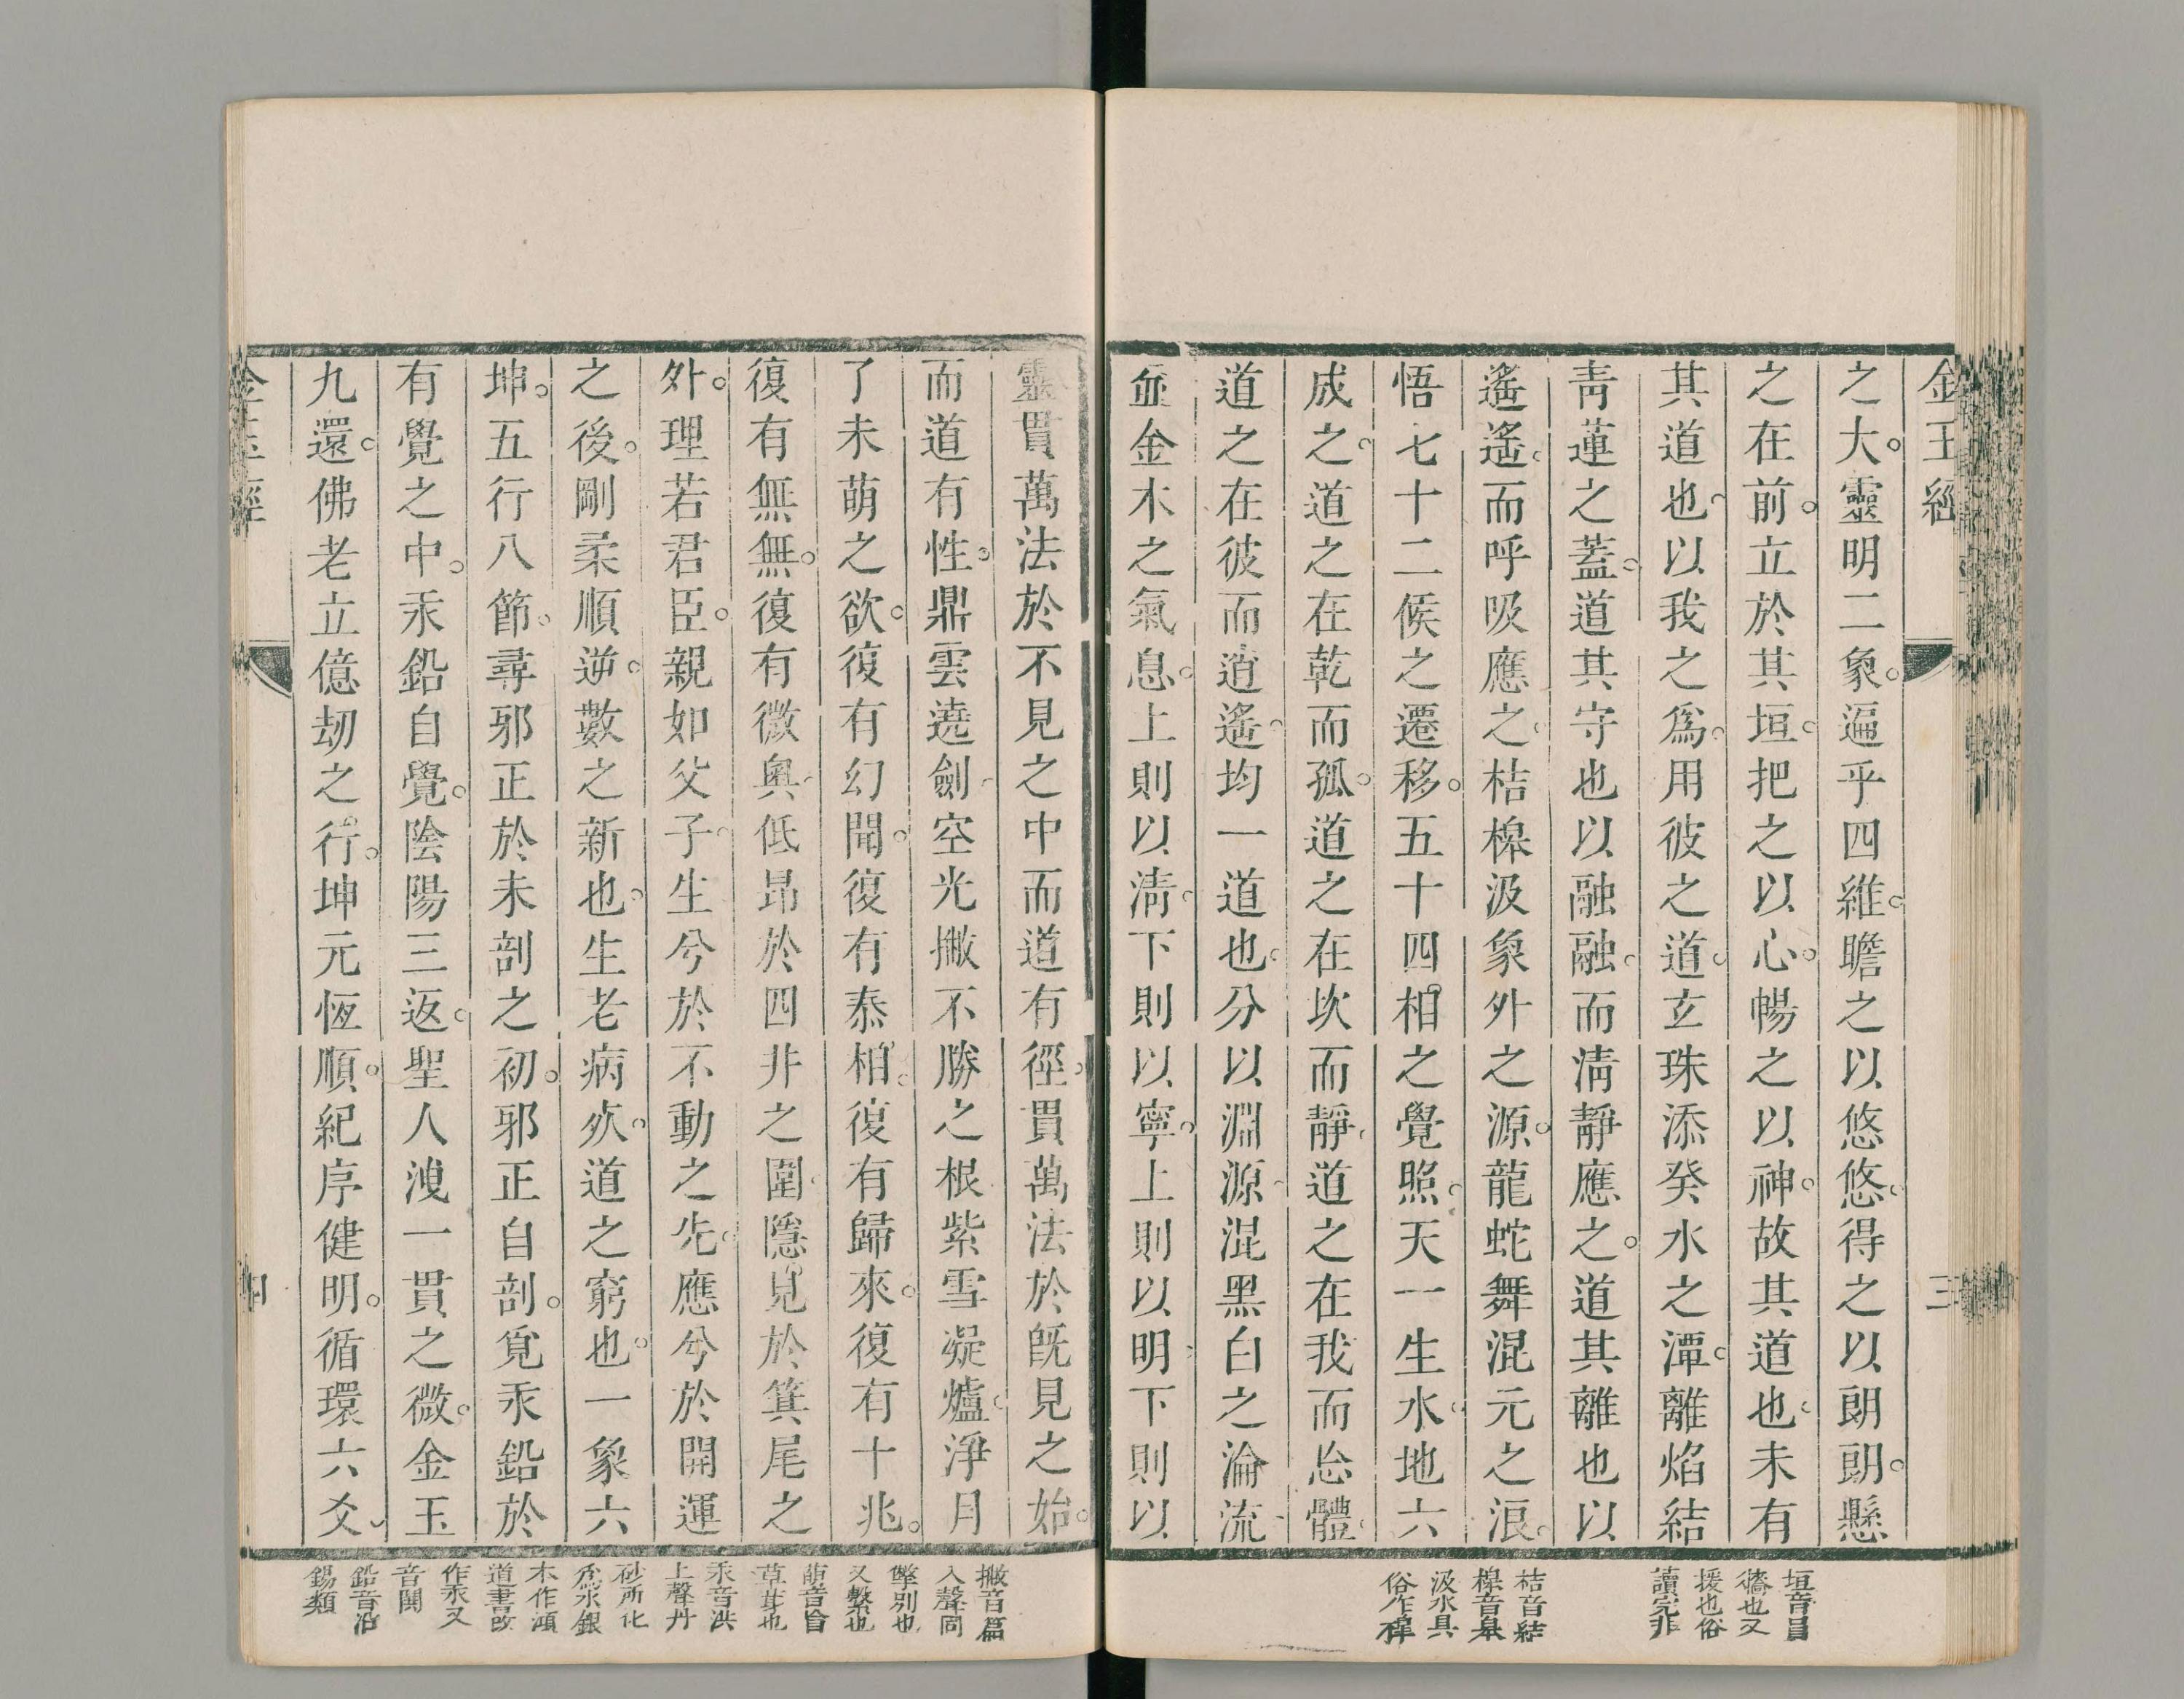 金玉經
三
之大。靈明二象。逼乎四維。瞻之以悠悠。得之以朗朗。懸
之在前。立於其垣。把之以心。暢之以神。故其道也。未有
其道也。以我之爲。用彼之道。玄珠添癸水之潭。離焰結
靑蓮之蓋。道其守也以融融。而淸靜應之。道其離也以
遙遙。而呼吸應之。桔槹汲象外之源。龍蛇舞混元之浪。
悟七十二候之遷移。五十四相之覺照。天一生水。地六
成之。道之在乾而孤。道之在坎而靜。道之在我而怂體。
道之在彼而逍遙。均一道也。分以淵源。混黑白之淪流。
並金木之氣息。上則以淸。下則以寧。上則以明。下則以
垣音員
牆也又
援也俗
讀完非
桔音結
槹音皋
汲水具
俗作槔
靈貫萬法於不見之中而道有徑。貫萬法於旣見之始。
而道有性。鼎雲遶劍。空光撇不勝之根。紫雪凝爐。淨月
了未萌之欲。復有幻聞。復有泰相。復有歸來。復有十兆。
復有無無。復有微奧。低昂於四非之圍。隱見於箕尾之
外。理若君臣。親如父子。生兮於不動之先。應兮於開運
之後。剛柔順逆。數之新也。生老病疚。道之窮也。一象六
坤。五行八節。尋邪正於未剖之初。邪正自剖。覓汞鉛於
有覺之中。汞鉛自覺。陰陽三返。聖人洩一貫之微。金玉
九還。佛老立億劫之行。坤元恆順。紀序健明。循環六爻。
金玉經
四
撇音篇
入聲同
擊別也
又繫也
萌音盲
草芽也
汞音洪
上聲丹
砂所化
爲水銀
本作澒
道書改
作汞又
音閧
鉛音沿
錫類